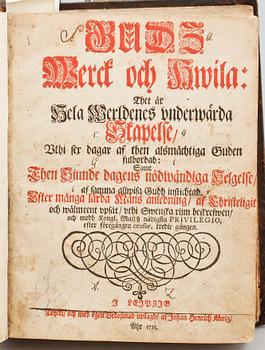 GUDS
Werck och Hwila:
Thet är
Hela Werldenes underwärda
Skapelse/
Uthi sex dagar af then alsmächtiga Guden
fulbordad:
Samt
Then Siunde dagens nödwändiga Helgelse/
af samma allwisa Gudh instichtad.
Efter många lärda Mäns anledning/ af Christeligit
och wälment upsåt/ uthi Swenska rijm beskrefwen/
och medh Kongl. Maij:tz nådigsta PRIVILEGIO,
efter föregången censur, tredie gången.
J LEIPZIG
Tryckt/ och med egen Bekostnad uplagdt/ af Johan Henrich König/
Åhr 1725.